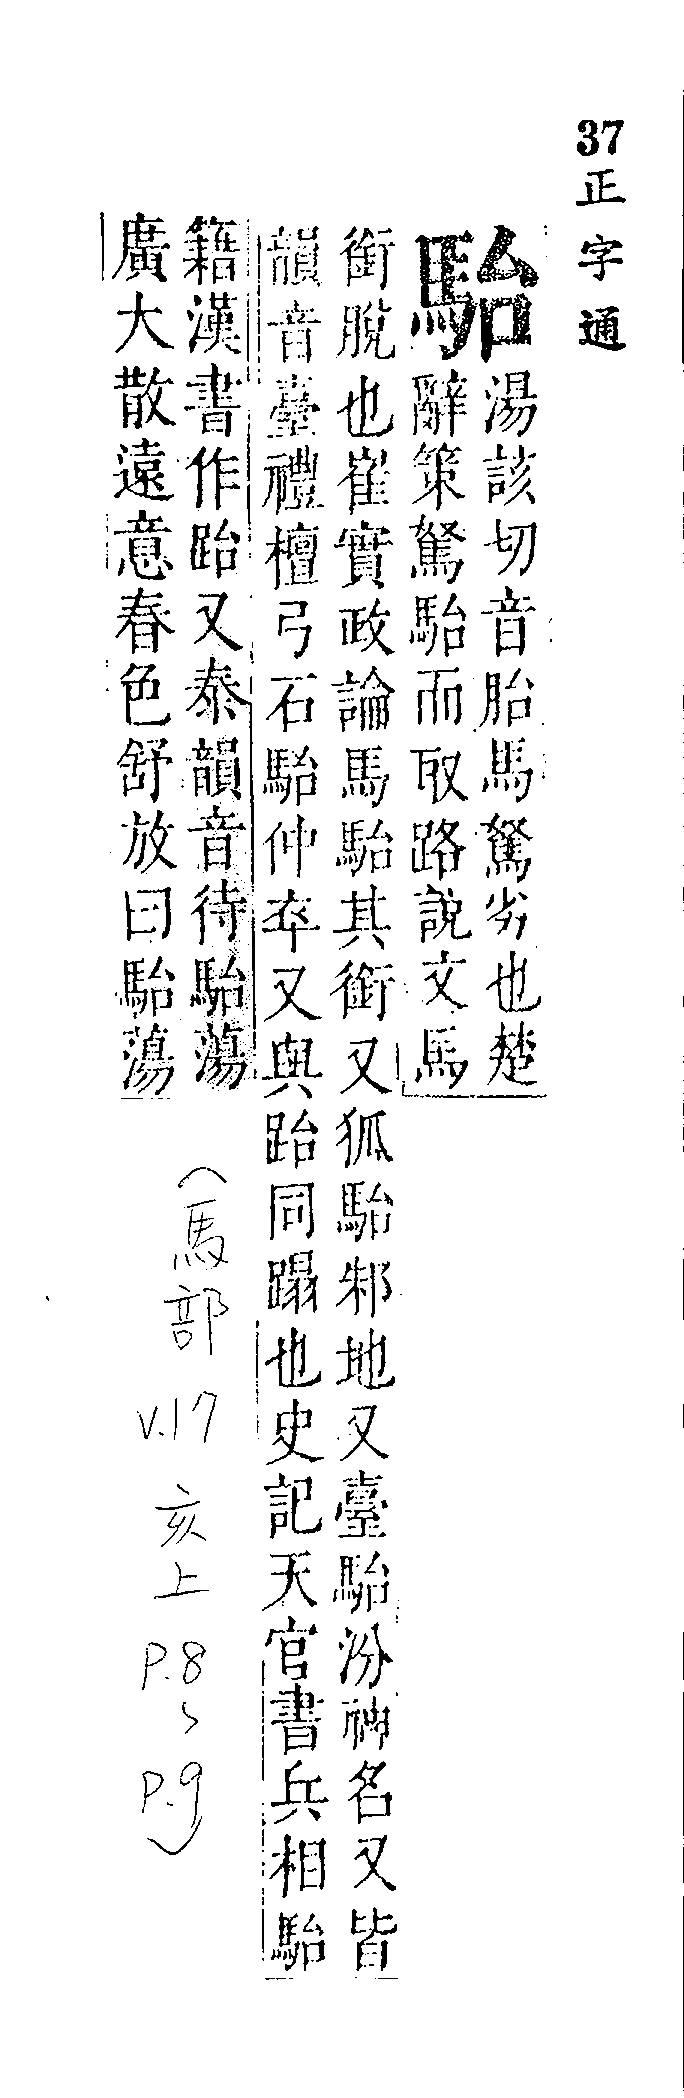 37正字通
駘
湯該切音胎馬駑劣也楚
辭策駑駘而取路說文馬
銜脫也崔實政論馬駘其銜又狐駘邾地又臺駘汾神名又皆
韻音臺禮檀弓石駘仲卒又與跆同蹋也史記天官書兵相駘
籍漢書作跆又泰韻音待駘蕩
廣大散遠意春色舒放曰駘蕩
(馬部 V.17 亥上 P.8~P.9)